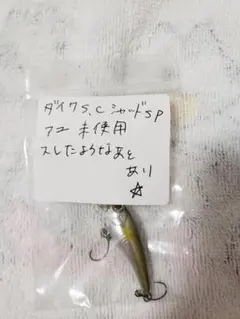 ダイワS.CシャッドSP
アユ 未使用
スしたようなあと
あり
☆